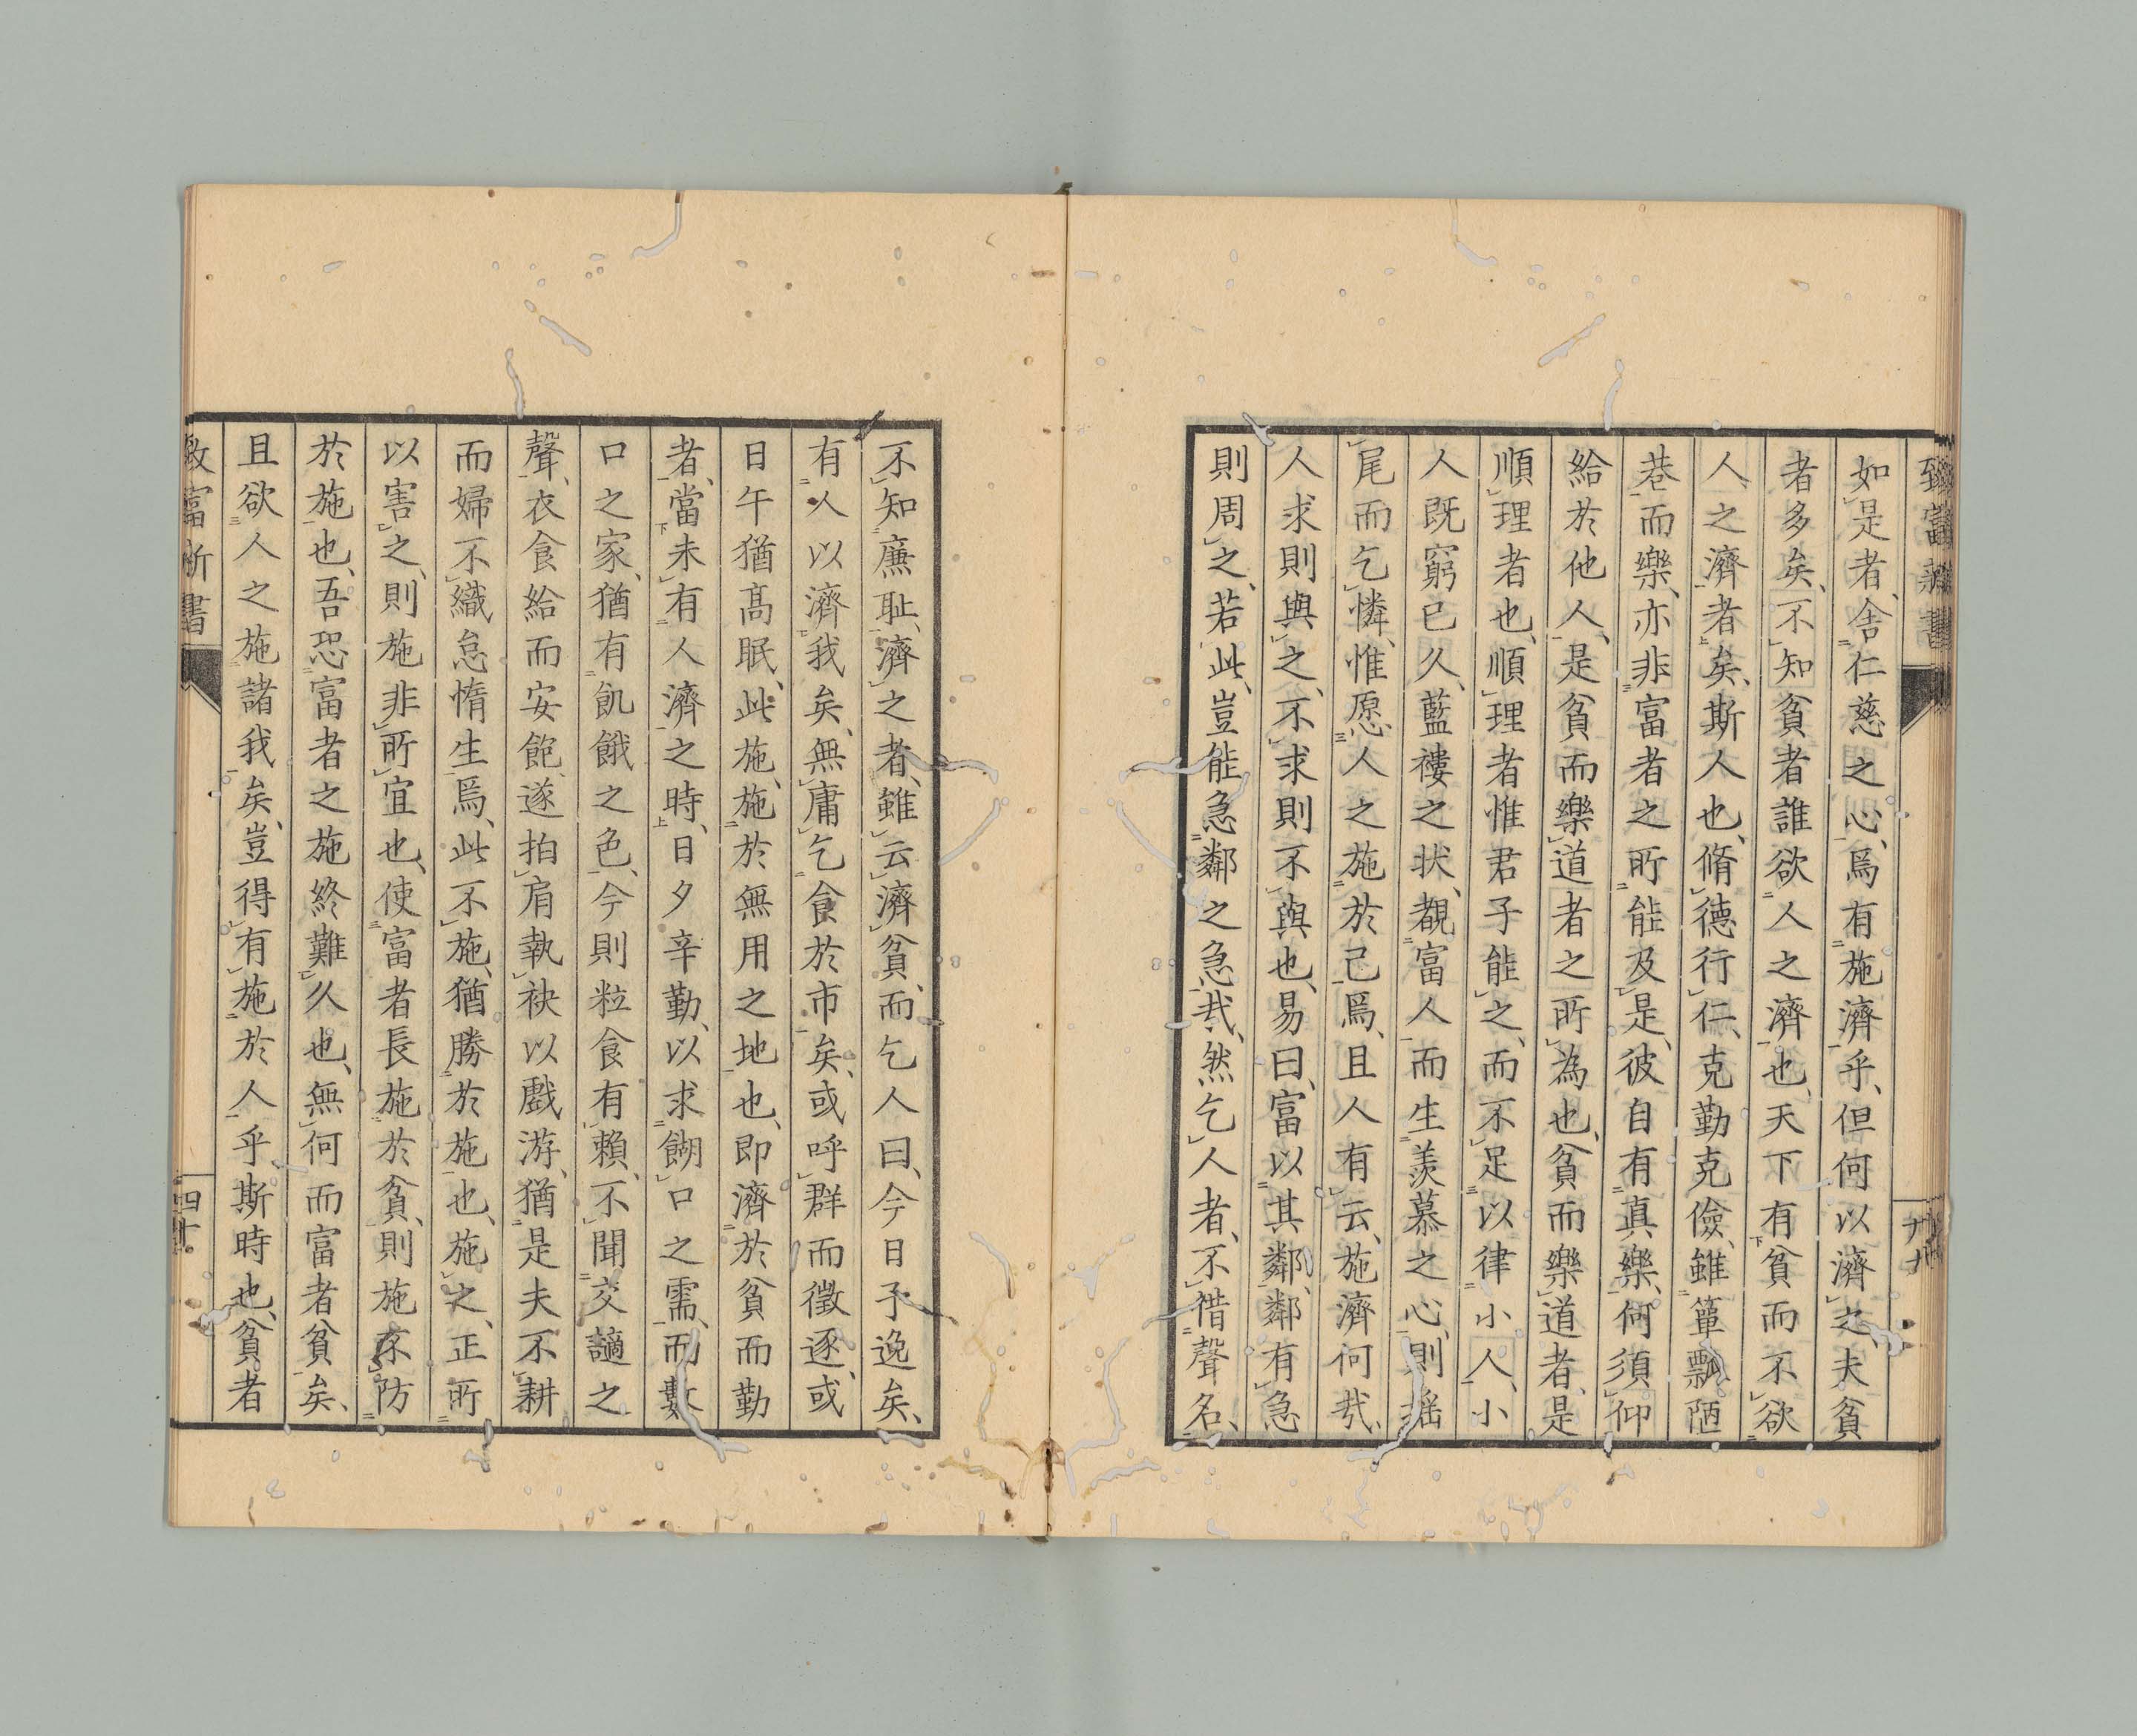 致富新書
如是者、舍仁慈之心、焉有施濟乎、但何以濟之、夫貧
者多矣、不知貧者誰欲人之濟也、天下有貧而不欲
人之濟者矣、斯人也、脩德行仁、克勤克儉、雖簞瓢陋
巷而樂、亦非富者之所能及、是彼自有真樂、何須仰
給於他人、是貧而樂道者之所為也、貧而樂道者、是
順理者也、順理者惟君子能之、而不足以律小人、小
人既窮已久、藍褸之状、覩富人而生羡慕之心、則摇
尾而乞憐、惟愿人之施於己焉、且人有云、施濟何㦲、
人求則與之、不求則不與也、易曰、富以其鄰、鄰有急
則周之、若此、豈能急鄰之急㦲、然乞人者、不借聲名、
不知廉耻、濟之者、雖云濟貧、而乞人曰、今日予逸矣、
有人以濟我矣、無庸乞食於市矣、或呼群而徵逐、或
日午猶高眠、此施、施於無用之地也、即濟於貧而勤
者、當未有人濟之時、日夕辛勤、以求餬口之需、而數
口之家、猶有飢餓之色、今則粒食有賴、不聞交謫之
聲、衣食給而安飽、遂拍肩執袂以戲游、猶是夫不耕
而婦不織、怠惰生焉、此不施、猶勝於施也、施之、正所
以害之、則施非所宜也、使富者長施於貧、則施不防
於施也、吾恐富者之施終難久也、無何而富者貧矣、
且欲人之施諸我矣、豈得有施於人乎、斯時也、貧者
致富新書
四十